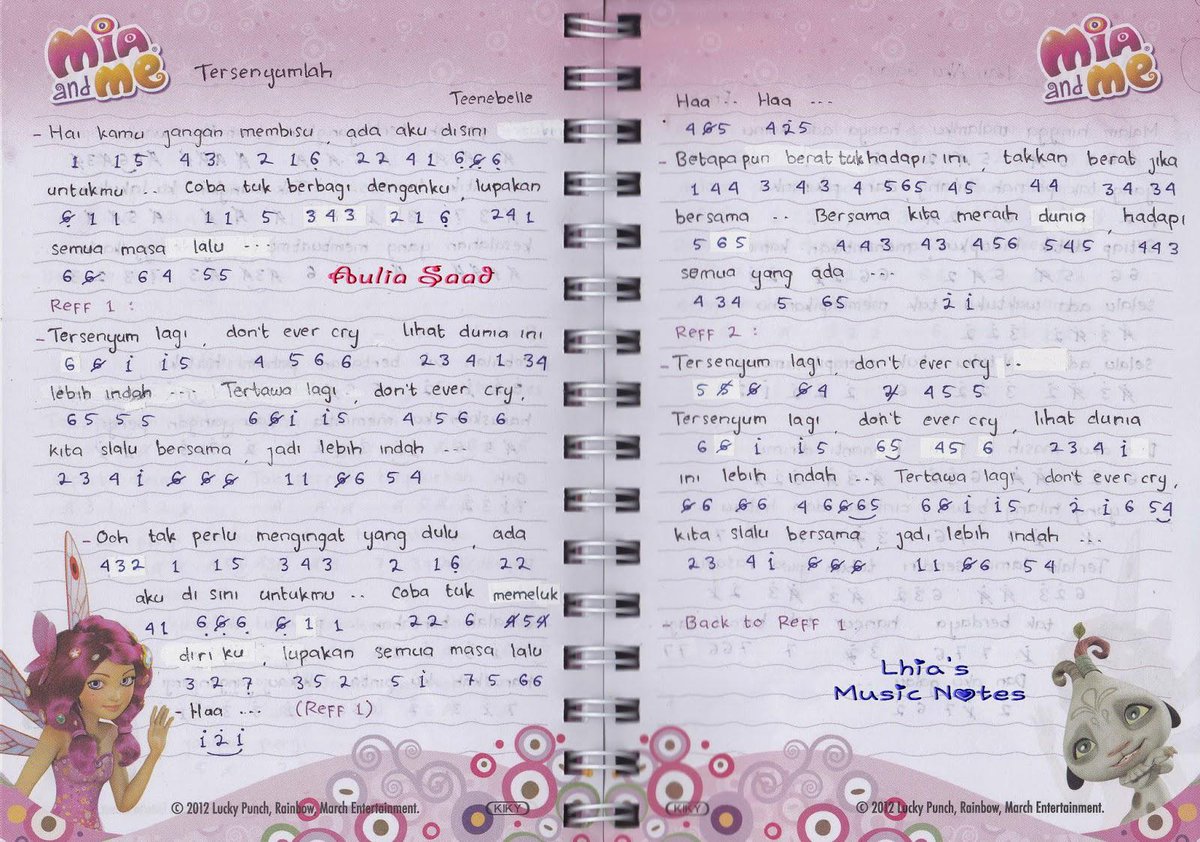 Mia and me
Tersenyumlah
Teenebelle
- Hai kamu jangan membisu, ada aku disini
1 1 5 4 3 2 1 6 2 2 4 1 6 6 6
untukmu ... Coba tuk berbagi denganku, lupakan
6 1 1 1 1 5 3 4 3 2 1 6 2 4 1
semua masa lalu ...
6 6 6 4 5 5
Aulia Saad
Reff 1 :
- Tersenyum lagi, don't ever cry - lihat dunia ini
6 6 i i 5 4 5 6 6 2 3 4 1 3 4
lebih indah ... Tertawa lagi, don't ever cry,
6 5 5 5 6 6 i i 5 4 5 6 6
kita slalu bersama, jadi lebih indah ...
2 3 4 i 6 6 6 1 1 6 6 5 4
- Ooh tak perlu mengingat yang dulu, ada
4 3 2 1 1 5 3 4 3 2 1 6 2 2
aku di sini untukmu .. Coba tuk memeluk
4 1 6 6 6 6 1 1 2 2 6 4 5 4
diri ku, lupakan semua masa lalu
3 2 7 3 5 2 5 i 7 5 6 6
- Haa ... (Reff 1)
i 2 i
© 2012 Lucky Punch, Rainbow, March Entertainment.
KIKY
Mia and me
Haa .. Haa ...
4 6 5 4 2 5
- Betapa pun berat tuk hadapi ini, takkan berat jika
1 4 4 3 4 3 4 5 6 5 4 5 4 4 3 4 3 4
bersama .. Bersama kita meraih dunia, hadapi
5 6 5 4 4 3 4 3 4 5 6 5 4 5 4 4 3
semua yang ada ...
4 3 4 5 6 5 2 i
Reff 2 :
- Tersenyum lagi, don't ever cry ..
5 5 6 6 4 2 4 5 5
Tersenyum lagi, don't ever cry, lihat dunia
6 6 i i 5 6 5 4 5 6 2 3 4 i
ini lebih indah ... Tertawa lagi, don't ever cry,
6 6 6 6 4 6 6 6 5 6 6 i i 5 2 i 6 5 4
kita slalu bersama, jadi lebih indah ...
2 3 4 i 6 6 6 1 1 6 6 5 4
- Back to Reff 1.
Lhia's
Music Notes
KIKY
© 2012 Lucky Punch, Rainbow, March Entertainment.